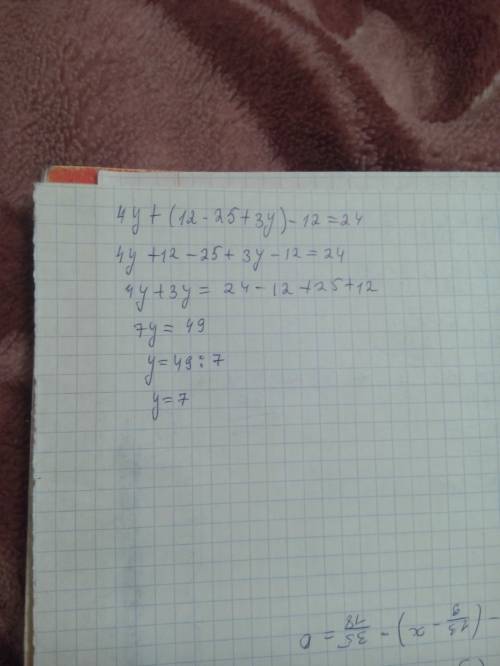 4y + (12 - 25 + 3y) - 12 = 24
4y + 12 - 25 + 3y - 12 = 24
4y + 3y = 24 - 12 + 25 + 12
7y = 49
y = 49 : 7
y = 7
- (13/9 - x) - 35/18 = 0